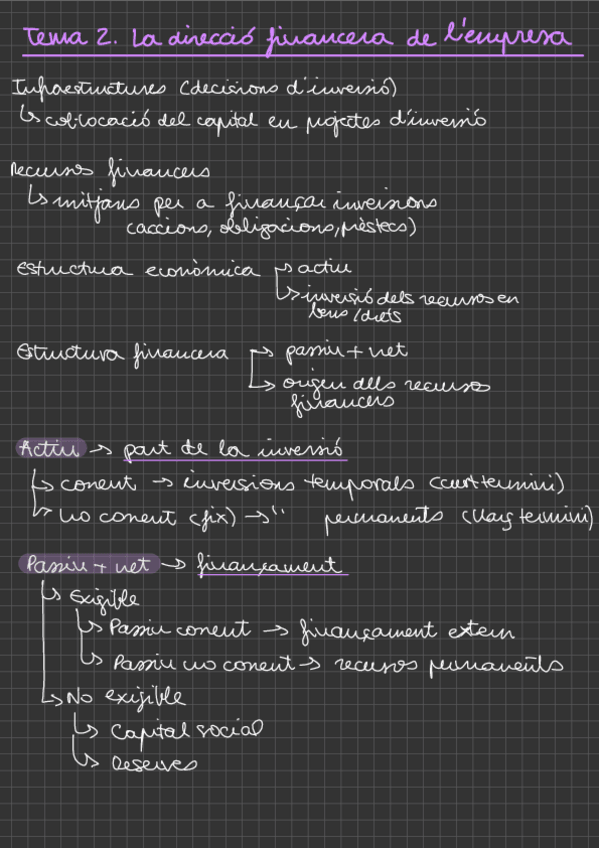 Tema 2. La direcció financera de l'empresa
Infraestructures (decisions d'inversió)
↳ col·locació del capital en projectes d'inversió
Recursos financers
↳ mitjans per a finançar inversions
(accions, obligacions, préstecs)
Estructura econòmica → actiu
↳ inversió dels recursos en
bens/drets
Estructura financera → passiu + net
↳ origen dels recursos
financers
Actiu → part de la inversió
↳ corrent → inversions temporals (curt termini)
↳ no corrent (fix) → " permanents (llarg termini)
Passiu + net → finançament
↳ Exigible
↳ Passiu corrent → finançament extern
↳ Passiu no corrent → recursos permanents
↳ No exigible
↳ Capital social
↳ Reserves